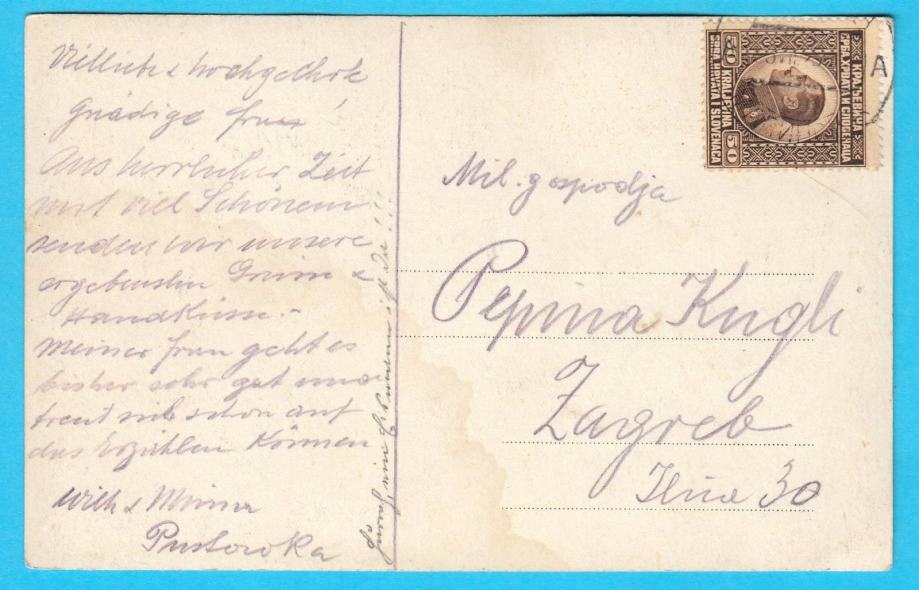 Vielliebe & hochgeehrte
Gnädige Frau!
Aus herrlicher Zeit
mit viel Schönem
senden wir unsere
ergebensten Grüsse &
Handküsse.-
Meiner Frau geht es
bisher sehr gut und
freut sich schon auf
das Erzählen Können
Willi & Minna
Mil. gospodja
Pepina Kugli
Zagreb
Ilica 30
КРАЉЕВИНА
СРБА ХРВАТА И СЛОВЕНАЦА
50 KRALJEVINA
SRBA HRVATA I SLOVENACA
50
A